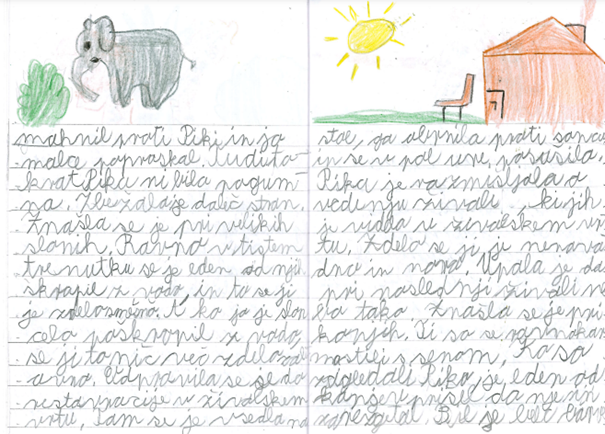 mahnil proti Piki in jo
malo popraskal. Tudi to-
krat Pika ni bila pogum-
na. Zbežala je daleč stran.
Znašla se je pri velikih
slonih. Ravno v tistem
trenutku se je eden od njih
skropil z vodo in to se ji
je zdelo smešno. A ko ja je slon
cela poškropil z vodo,
se ji to nič več zdelo
Odpravila se je do
restavracije v živalskem
vrtu. Tam se je vsedla na
stol, ga obrnila proti soncu
in se v pol ure posušila.
Pika je razmišljala o
vedenju živali, ki jih
je vidla v živalskem vr
tu. Zdelo se ji je nenava
dno in novo. Upala je da
pri naslednji živali ne
bo tako. Znašla se je pri
konjih. Ti so se
s senom. Ko so
zagledali Piko je eden od
konjev prišel do nje in
zarezgetal. Bil je bele barve